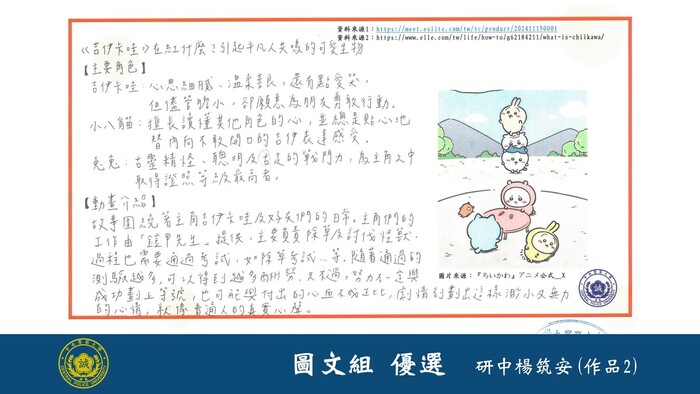 資料來源1：https://meet.eslite.com/tw/tc/product/202411150001
資料來源2：https://www.elle.com/tw/life/how-to/g62184211/what-is-chiikawa/
《吉伊卡哇》在紅什麼？引起平凡人共鳴的可愛生物
【主要角色】
吉伊卡哇：心思細膩、溫柔善良，還有點愛哭，
但儘管膽小，卻願意為朋友勇敢行動。
小八貓：擅長讀懂其他角色的心，並總是貼心地
替內向不敢開口的吉伊表達感受。
兔兔：古靈精怪、聰明及十足的戰鬥力，為主角之中
取得證照等級最高者。
【動畫介紹】
故事圍繞著主角吉伊卡哇及好友們的日常。主角們的
工作由「鎧甲先生」提供，主要負責除草及討伐怪獸，
過程也需要通過考試，如除草考試…等。隨著通過的
測驗越多，可以得到越多酬勞。又不過，努力不一定與
成功劃上等號，也可能與付出的心血不成正比，劇情刻劃出這樣渺小又無力
的心情，就像普通人的真實心聲。
圖片來源：『ちいかわ』アニメ公式＿X
誠
誠
圖文組 優選 研中楊筑安(作品2)